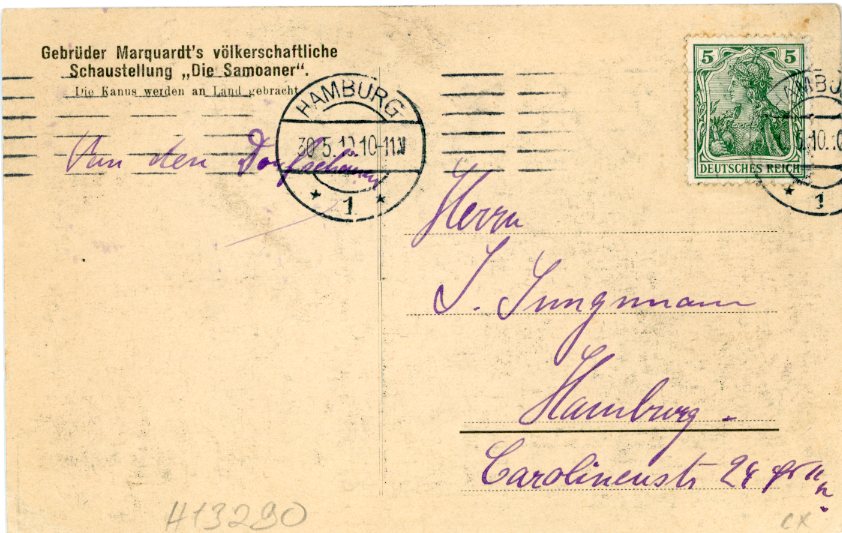 Gebrüder Marquardt's völkerschaftliche
Schaustellung „Die Samoaner".
Die Kanus werden an Land gebracht
HAMBURG
30.5.10.10-11V
* 1 *
5 5
DEUTSCHES REICH
Von den
Herrn
J. Jungmann
Hamburg.
Carolinenstr 24
H13290